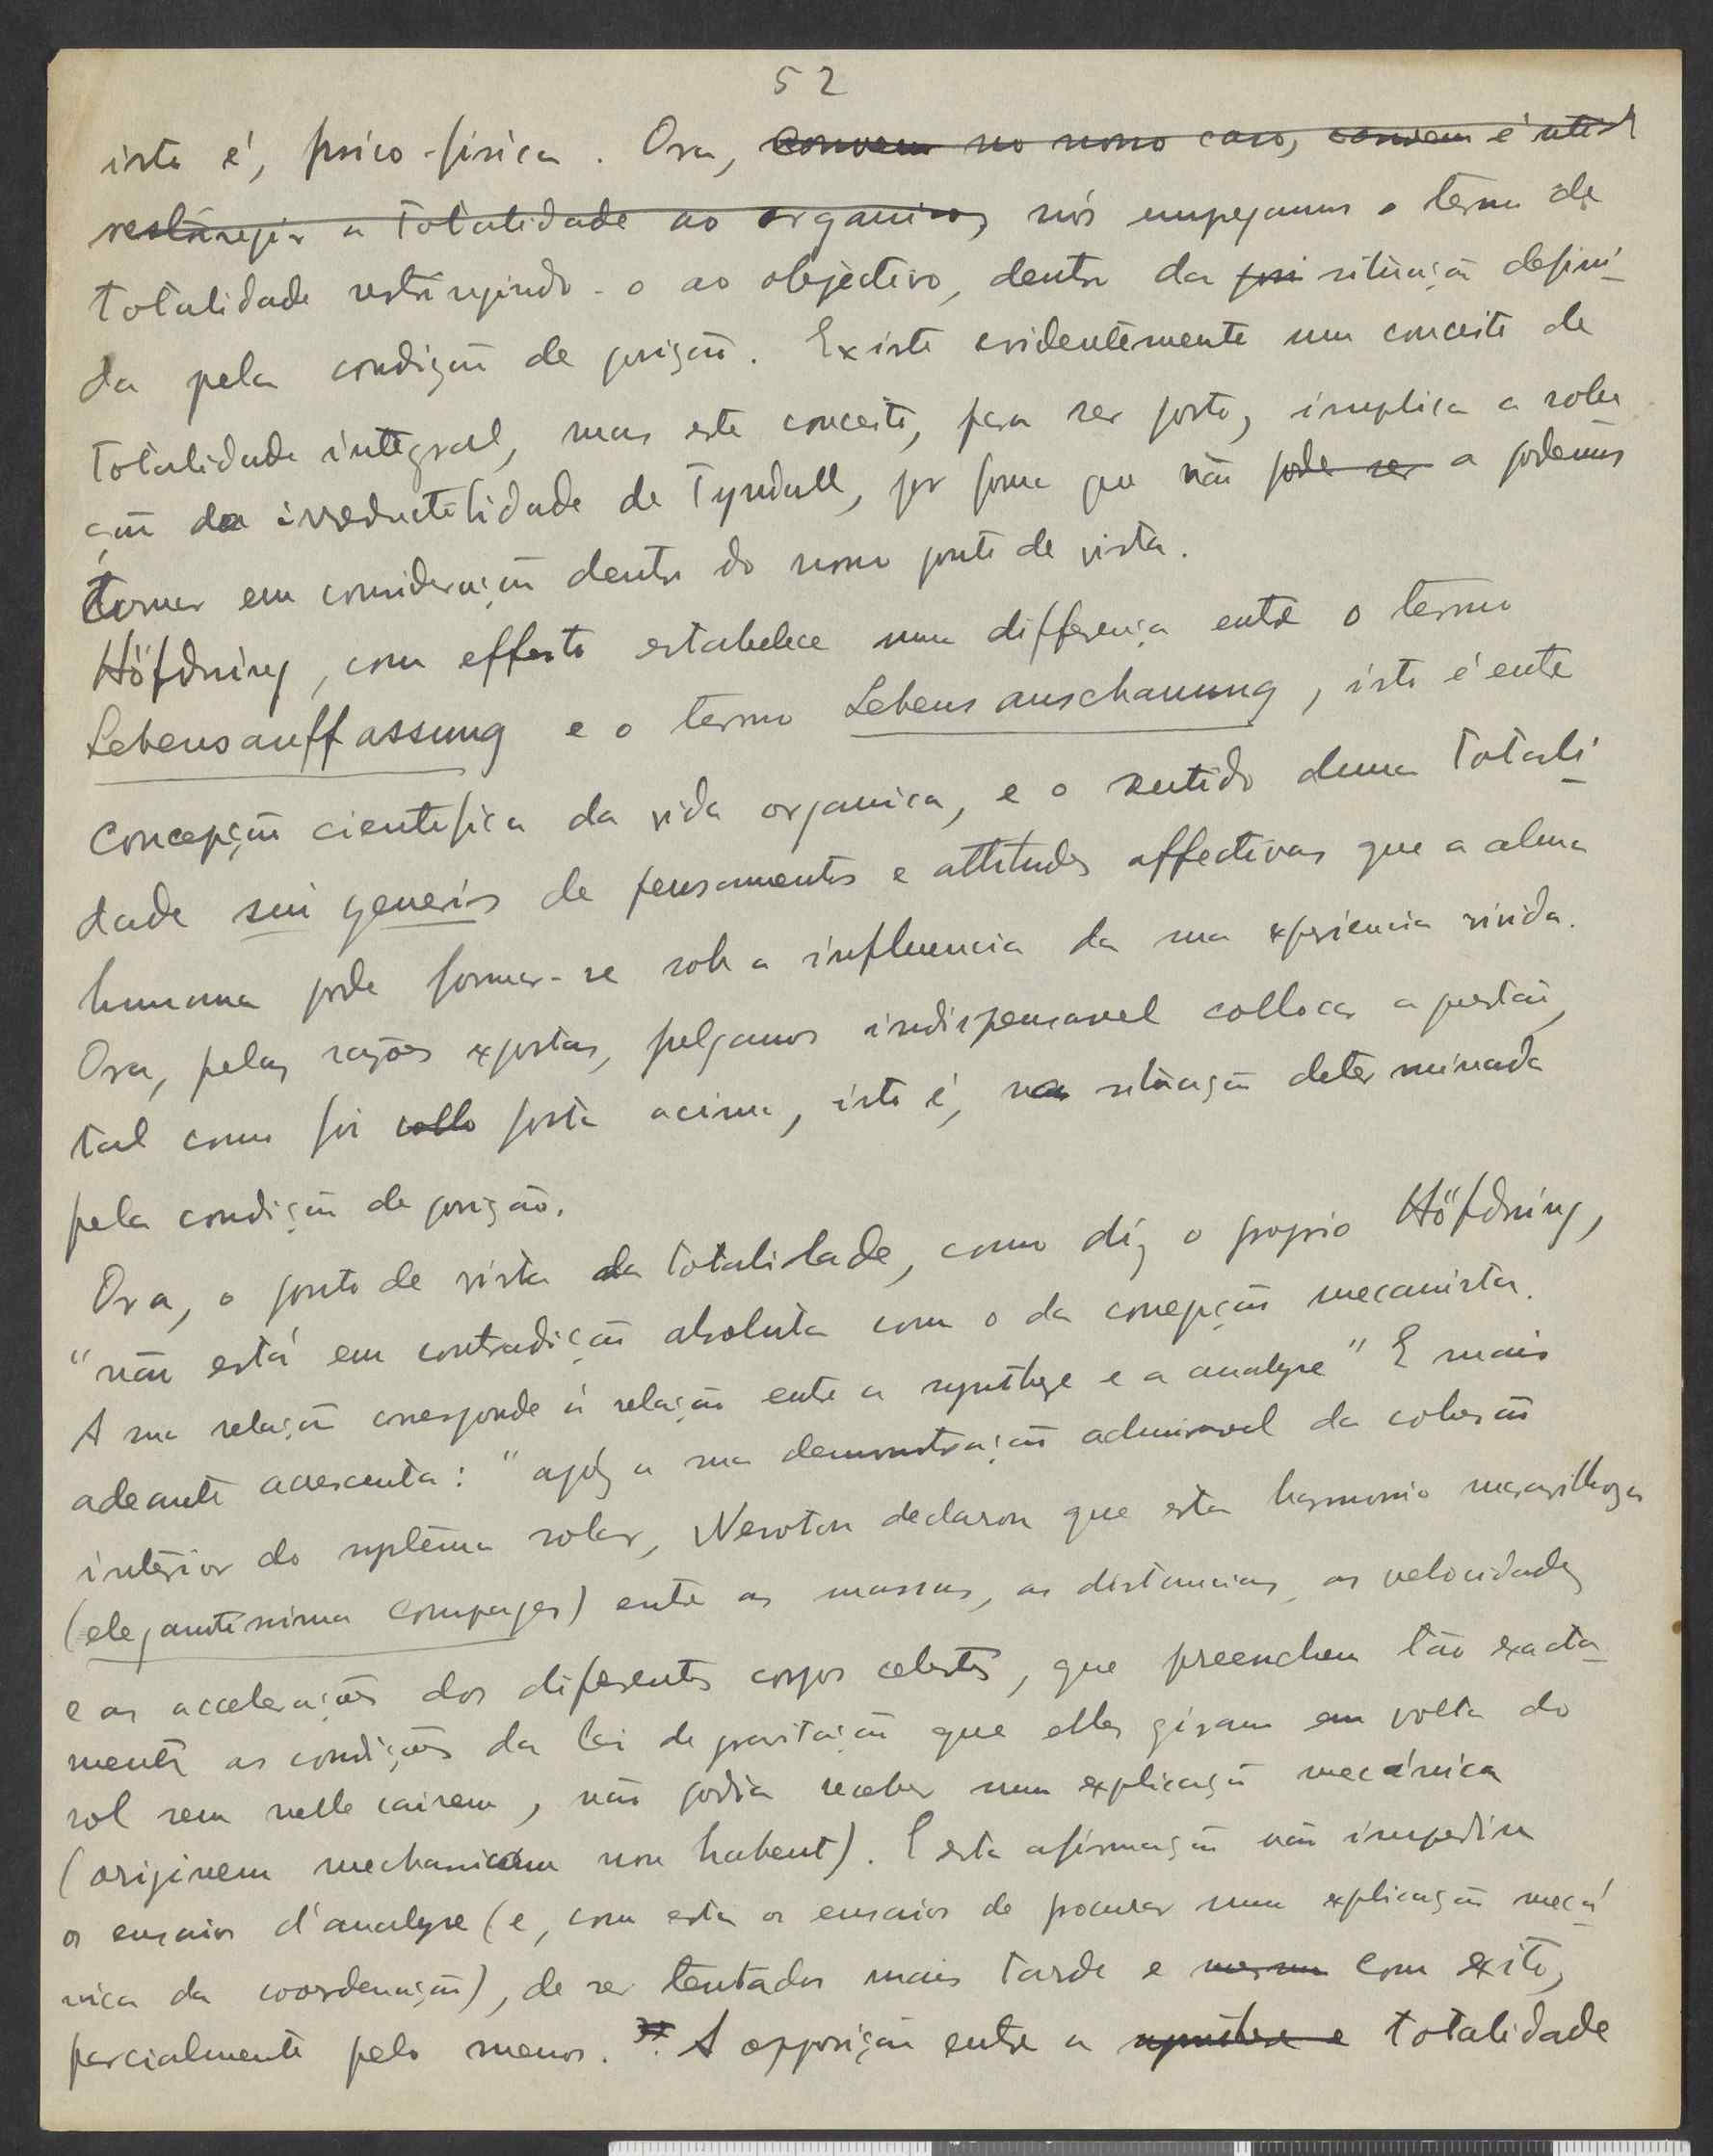 52
isto é, psico-física. Ora, convem no nosso caso, convem é util
restringir a totalidade ao organico, nós empregamos o termo de
totalidade restringindo-o ao objectivo, dentro da posi situação defini-
da pela condição de posição. Existe evidentemente um conceito de
totalidade integral, mas este conceito, para ser posto, implica a solu
ção da irreductibilidade de Tyndall, por forma que não pode ser a podemos
tomar em consideração dentro do nosso ponto de vista.
Höfdning, com effeito estabelece uma differença entre o termo
Lebensauffassung e o termo Lebensanschauung, isto é entre
concepção cientifica da vida organica, e o sentido duma totali-
dade sui generis de pensamentos e attitudes affectivas que a alma
humana pode formar-se sob a influencia da sua experiencia vivida.
Ora, pelas razões expostas, julgamos indispensavel collocar a questão,
tal como foi collo posta acima, isto é, na situação determinada
pela condição de posição.
Ora, o ponto de vista da totalidade, como diz o proprio Höfdning,
"não está em contradicção absoluta com o da concepção mecanista.
A sua relação corresponde á relação entre a synthese e a analyse" E mais
adeante acrescenta: "após a sua demonstração admiravel da cohesão
interior do systema solar, Newton declarou que esta harmonia maravilhosa
(elegantissima compages) entre as massas, as distancias, as velocidades
e as accelerações dos diferentes corpos celestes, que preenchem tão exacta-
mente as condições da lei de gravitação que elles giram em volta do
sol sem nelle cairem, não podia receber uma explicação mecánica
(originem mechanicam non habent). E esta afirmação não impediu
os ensaios d'analyse (e, com esta os ensaios de procurar uma explicação mecá-
nica da coordenação), de ser tentados mais tarde e mesmo com exito,
parcialmente pelo menos." A opposição entre a synthese e totalidade